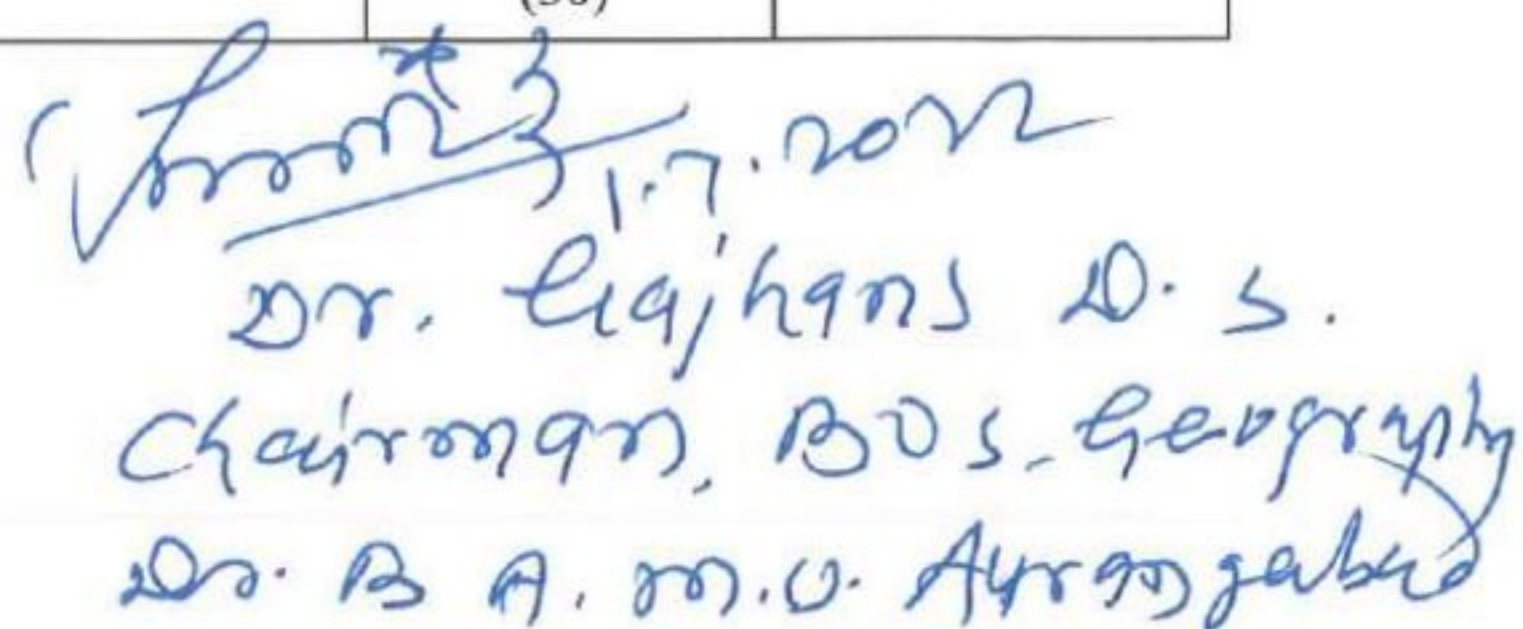 (50)
1.7.2022
Dr. Gajhans D. S.
Chairman, BOS. Geography
Dr. B A. M.U. Aurangabad